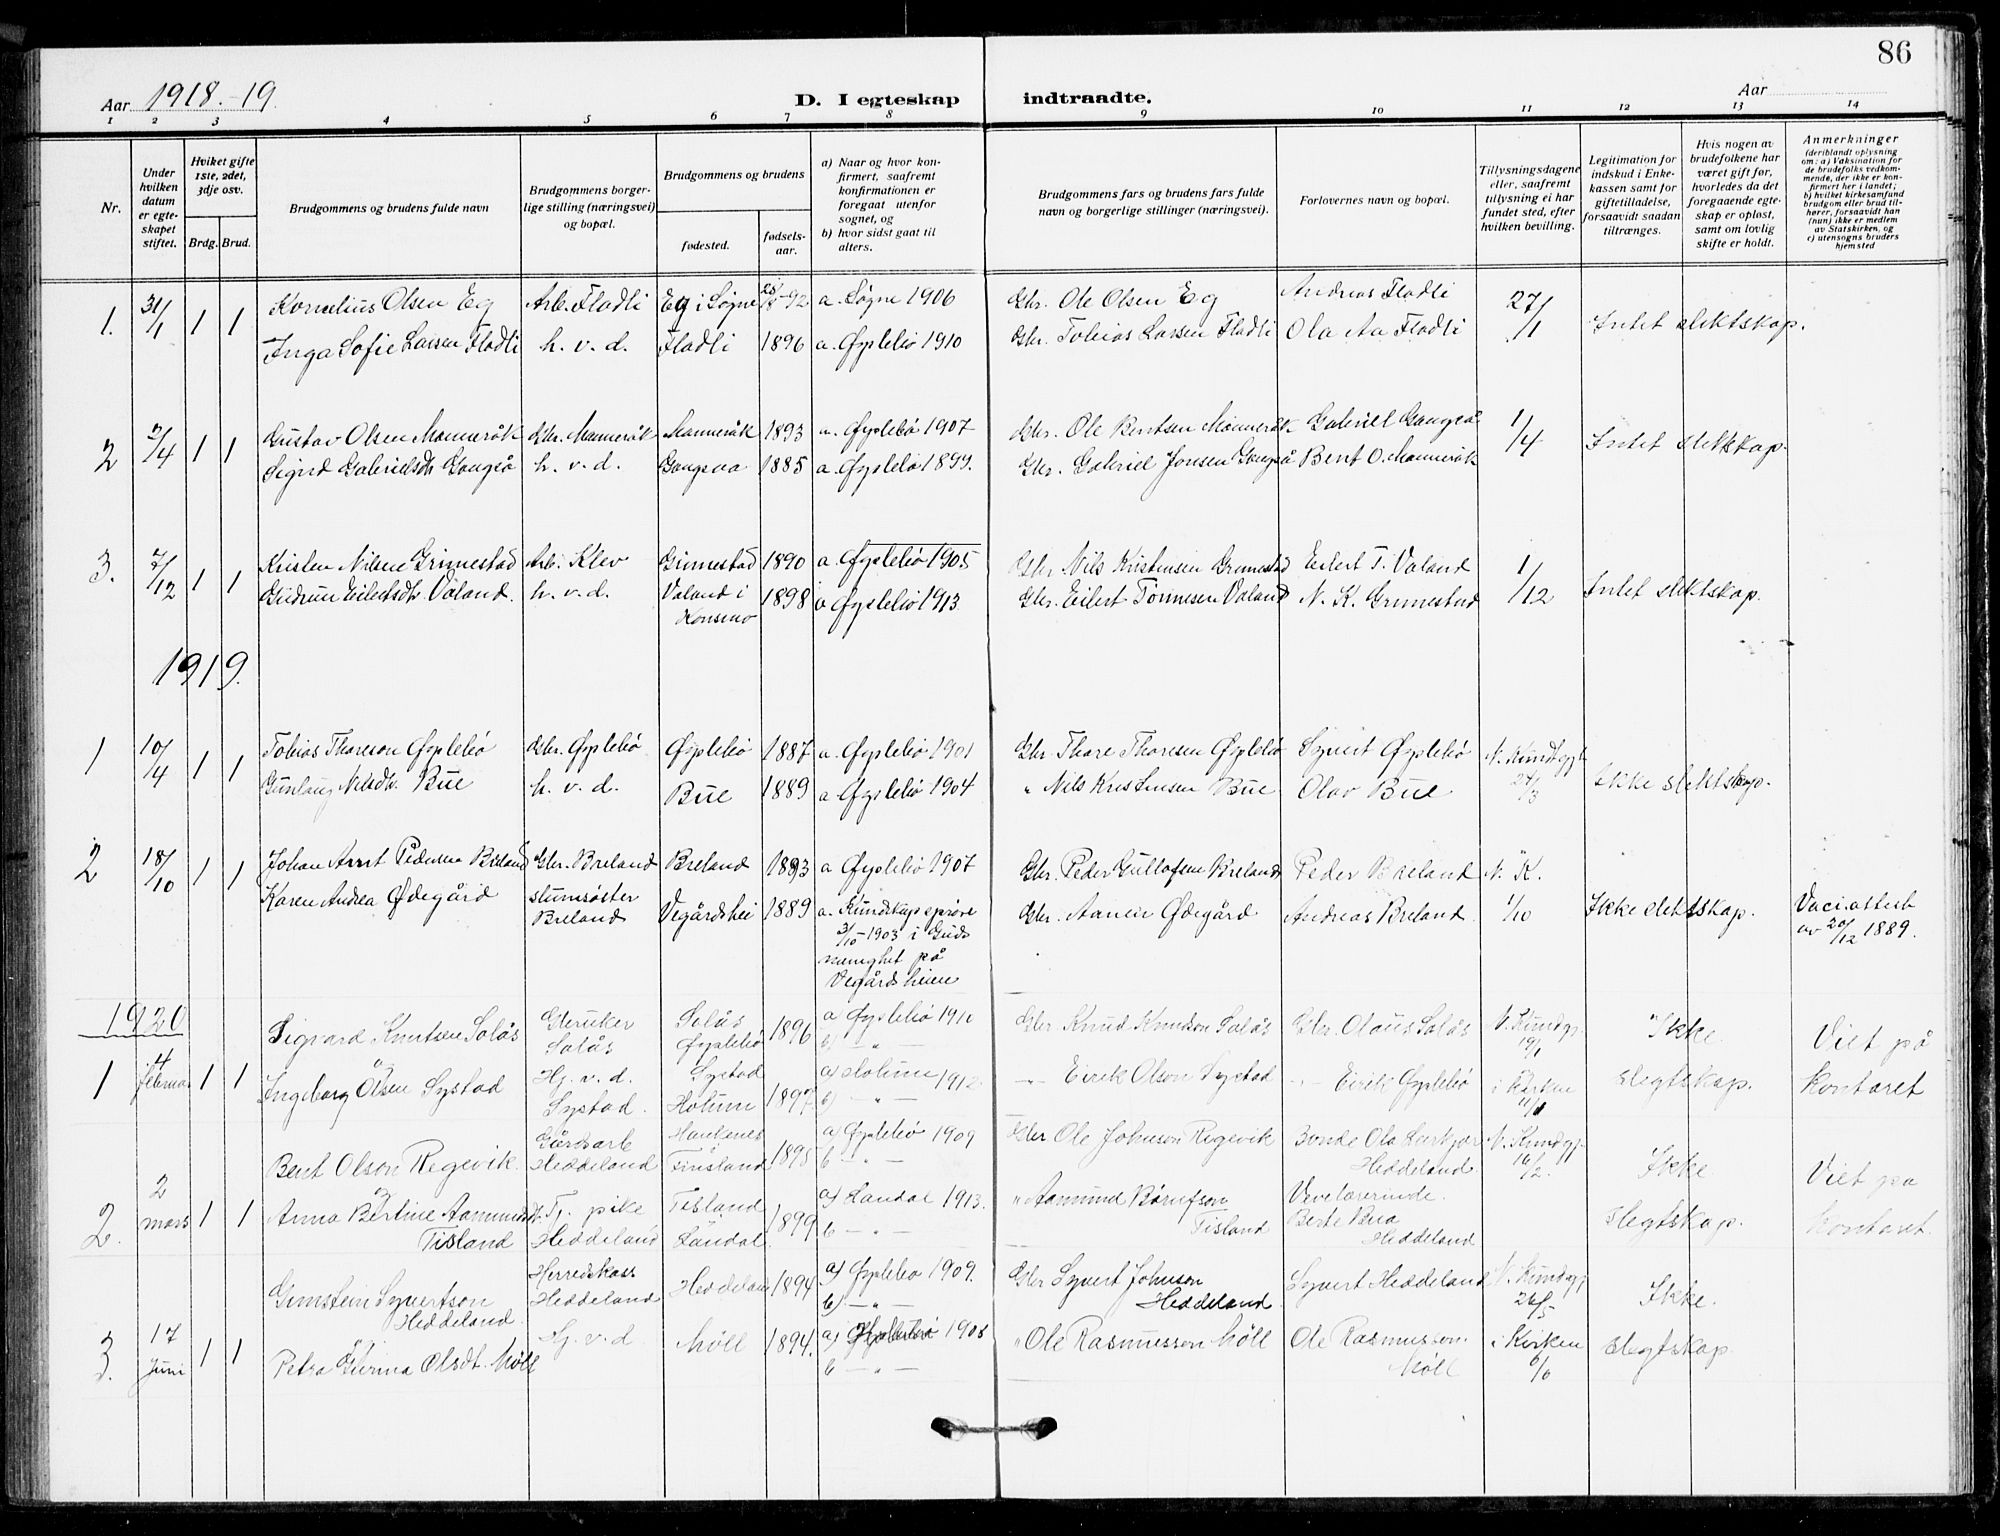 86
Aar 1918.-19.
D. I egteskap indtraadte.
Aar
1 2 3 4 5 6 7 8 9 10 11 12 13 14
Nr.
Under hvilken datum er egteskapet stiftet.
Hviket gifte 1ste, 2det, 3dje osv.
Brdg. Brud.
Brudgommens og brudens fulde navn
Brudgommens borgerlige stilling (næringsvei) og bopæl.
Brudgommens og brudens
fødested.
fødselsaar.
a) Naar og hvor konfirmert, saafremt konfirmationen er foregaat utenfor sognet, og
b) hvor sidst gaat til alters.
Brudgommens fars og brudens fars fulde navn og borgerlige stillinger (næringsvei).
Forlovernes navn og bopæl.
Tillysningsdagene eller, saafremt tillysning ei har fundet sted, efter hvilken bevilling.
Legitimation for indskud i Enkekassen samt for giftetilladelse, forsaavidt saadan tiltrænges.
Hvis nogen av brudefolkene har været gift før, hvorledes da det foregaaende egteskap er opløst, samt om lovlig skifte er holdt.
Anmerkninger (deriblandt oplysning om: a) Vaksination for de brudefolks vedkommende, der ikke er konfirmert her i landet; b) hvilket kirkesamfund brudgom eller brud tilhører, forsaavidt han (hun) ikke er medlem av Statskirken, og c) utensogns bruders hjemsted
1. 31/1 1 1 Kornelius Olsen Eg Arb. Fladli Eg i Søgne -92 a. Søgne 1906 Gbr. Ole Olsen Eg Andreas Fladli 27/1 Intet slektskap.
Inga Sofie Larsen Fladli h. v. d. Fladli 1896 a. Øyslebö 1910 Gbr. Tobias Larsen Fladli Ola Aa Fladli
2 2/4 1 1 Gustav Olsen Manneråk Gbr. Manneråk Manneråk 1893 a. Øyslebö 1907 Gbr. Ole Bentsen Manneråk Gabriel Gangså 1/4 Intet slektskap.
Sigrid Gabrielsdtr Gangså h. v. d. Gangsaa 1885 a. Øyslebö 1899. Gbr. Gabriel Jonsen Gangså Bent O. Manneråk
3. 7/12 1 1 Kristen Nilsen Grimestad Arb. Klev Grimestad 1890 a. Øyslebö 1905 Gbr Nils Kristensen Grimestad Eilert T. Valand 1/12 Intet slektskap.
Gudrun Eilertsdtr. Valand. h. v. d. Valand i Konsmo 1898 a Øyslebö 1913. Gbr. Eilert Tönnesen Valand N. K. Grimestad
1919.
1 10/4 1 1 Tobias Thoreson Øyslebö Gbr. Øyslebö Øyslebö 1887 a. Øyslebö 1901 Gbr Thore Thoresen Øyslebö Syvert Øyslebö N. Kundgj. 24/3 Ikke slektskap.
Gunlaug Nilsdtr. Bue h. v. d. Bue 1889 a Øyslebö 1904 " Nils Kristensen Bue Olav Bue
2 18/10 1 1 Johan Arnt Pedersen Breland Gbr. Breland Breland 1893 a Øyslebö 1907 Gbr. Peder Gullofsen Breland Peder Breland N. K. 1/10 Ikke slektskap.
Karen Andrea Ødegård slumsøster Breland Vegårdshei 1889 a. Kundskapsprøve 3/10-1903 i Guds menighet på Vegårdsheien Gbr. Aanen Ødegård Andreas Breland. Vaci.attest av 20/12 1889.
1920
1 4 februar 1 1 Sigvard Knutsen Solås Gbruker Solås Solås Øyslebö 1896 a Øyslebö b) — " — Gbr. Knud Knudson Solås Gbr. Olaus Solås N. Kundgj. Ikke slegtskap. Viet på kontoret
Ingeborg Olsen Systad Hj. v. d. Systad. Systad Holum 1897 a) Holum 1912. b) — " — —"— Eirik Olson Systad —"— Eirik Øyslebö i Kirken
2. 2 mars 1 1 Bent Olson Regevik. Gårdsarb Heddeland Finsland 1895 a) Øyslebö 1909 b — " — Gbr Ole Johnson Regevik Bonde Ola Heddeland N. Kundgj. 16/2. Ikke slegtskap. Viet på kontoret.
Anna Bertine Tisland Tj. pike Heddeland Tisland Laudal. 1899 a) Laudal 1913. b — " — " Aamund Tisland Vevelærerinde. Berte Bua Heddeland
3. 17 Juni 1 1 Gimstein Syvertson Heddeland. Herredskass Heddeland Heddeland 1894 a) Øyslebö 1909. b) — " — Gbr Syvert Johnson Heddeland. Syvert Heddeland N. Kundgj. 26/5 Ikke. slegtskap.
Petra Gurina Olsdt. Möll Hj. v. d Möll 1894. a) Øyslebö 1908 b — " — " Ole Rasmusson Möll Ole Rasmusson. Möll i Kirken 6/6